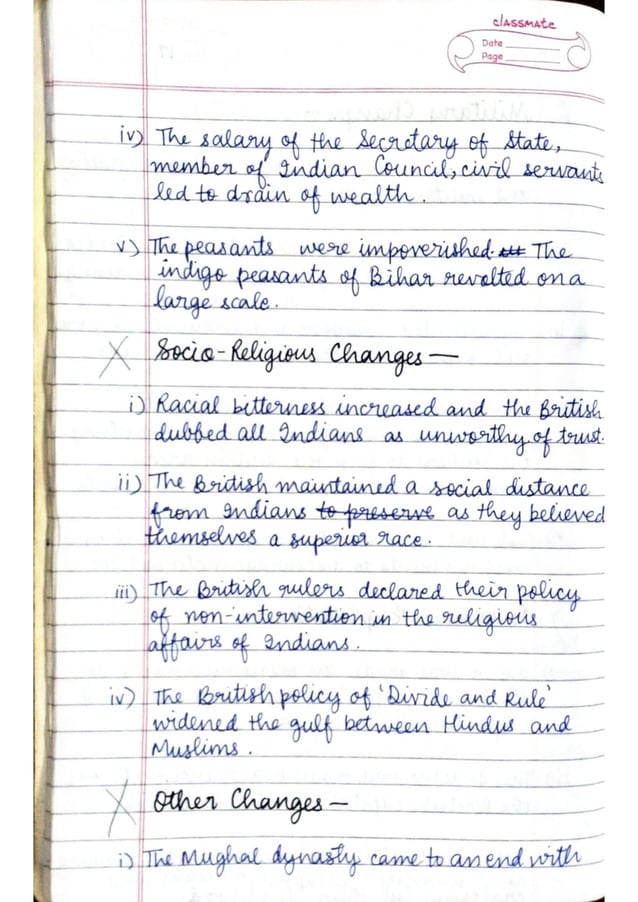 classmate
Date
Page
iv) The salary of the Secretary of State,
member of Indian Council, civil servants
led to drain of wealth.
v) The peasants were impoverished. The
indigo peasants of Bihar revolted on a
large scale.
Socio-Religious Changes —
i) Racial bitterness increased and the British
dubbed all Indians as unworthy of trust.
ii) The British maintained a social distance
from Indians to preserve as they believed
themselves a superior race.
iii) The British rulers declared their policy
of non-intervention in the religious
affairs of Indians.
iv) The British policy of 'Divide and Rule'
widened the gulf between Hindus and
Muslims.
Other Changes —
i) The Mughal dynasty came to an end with